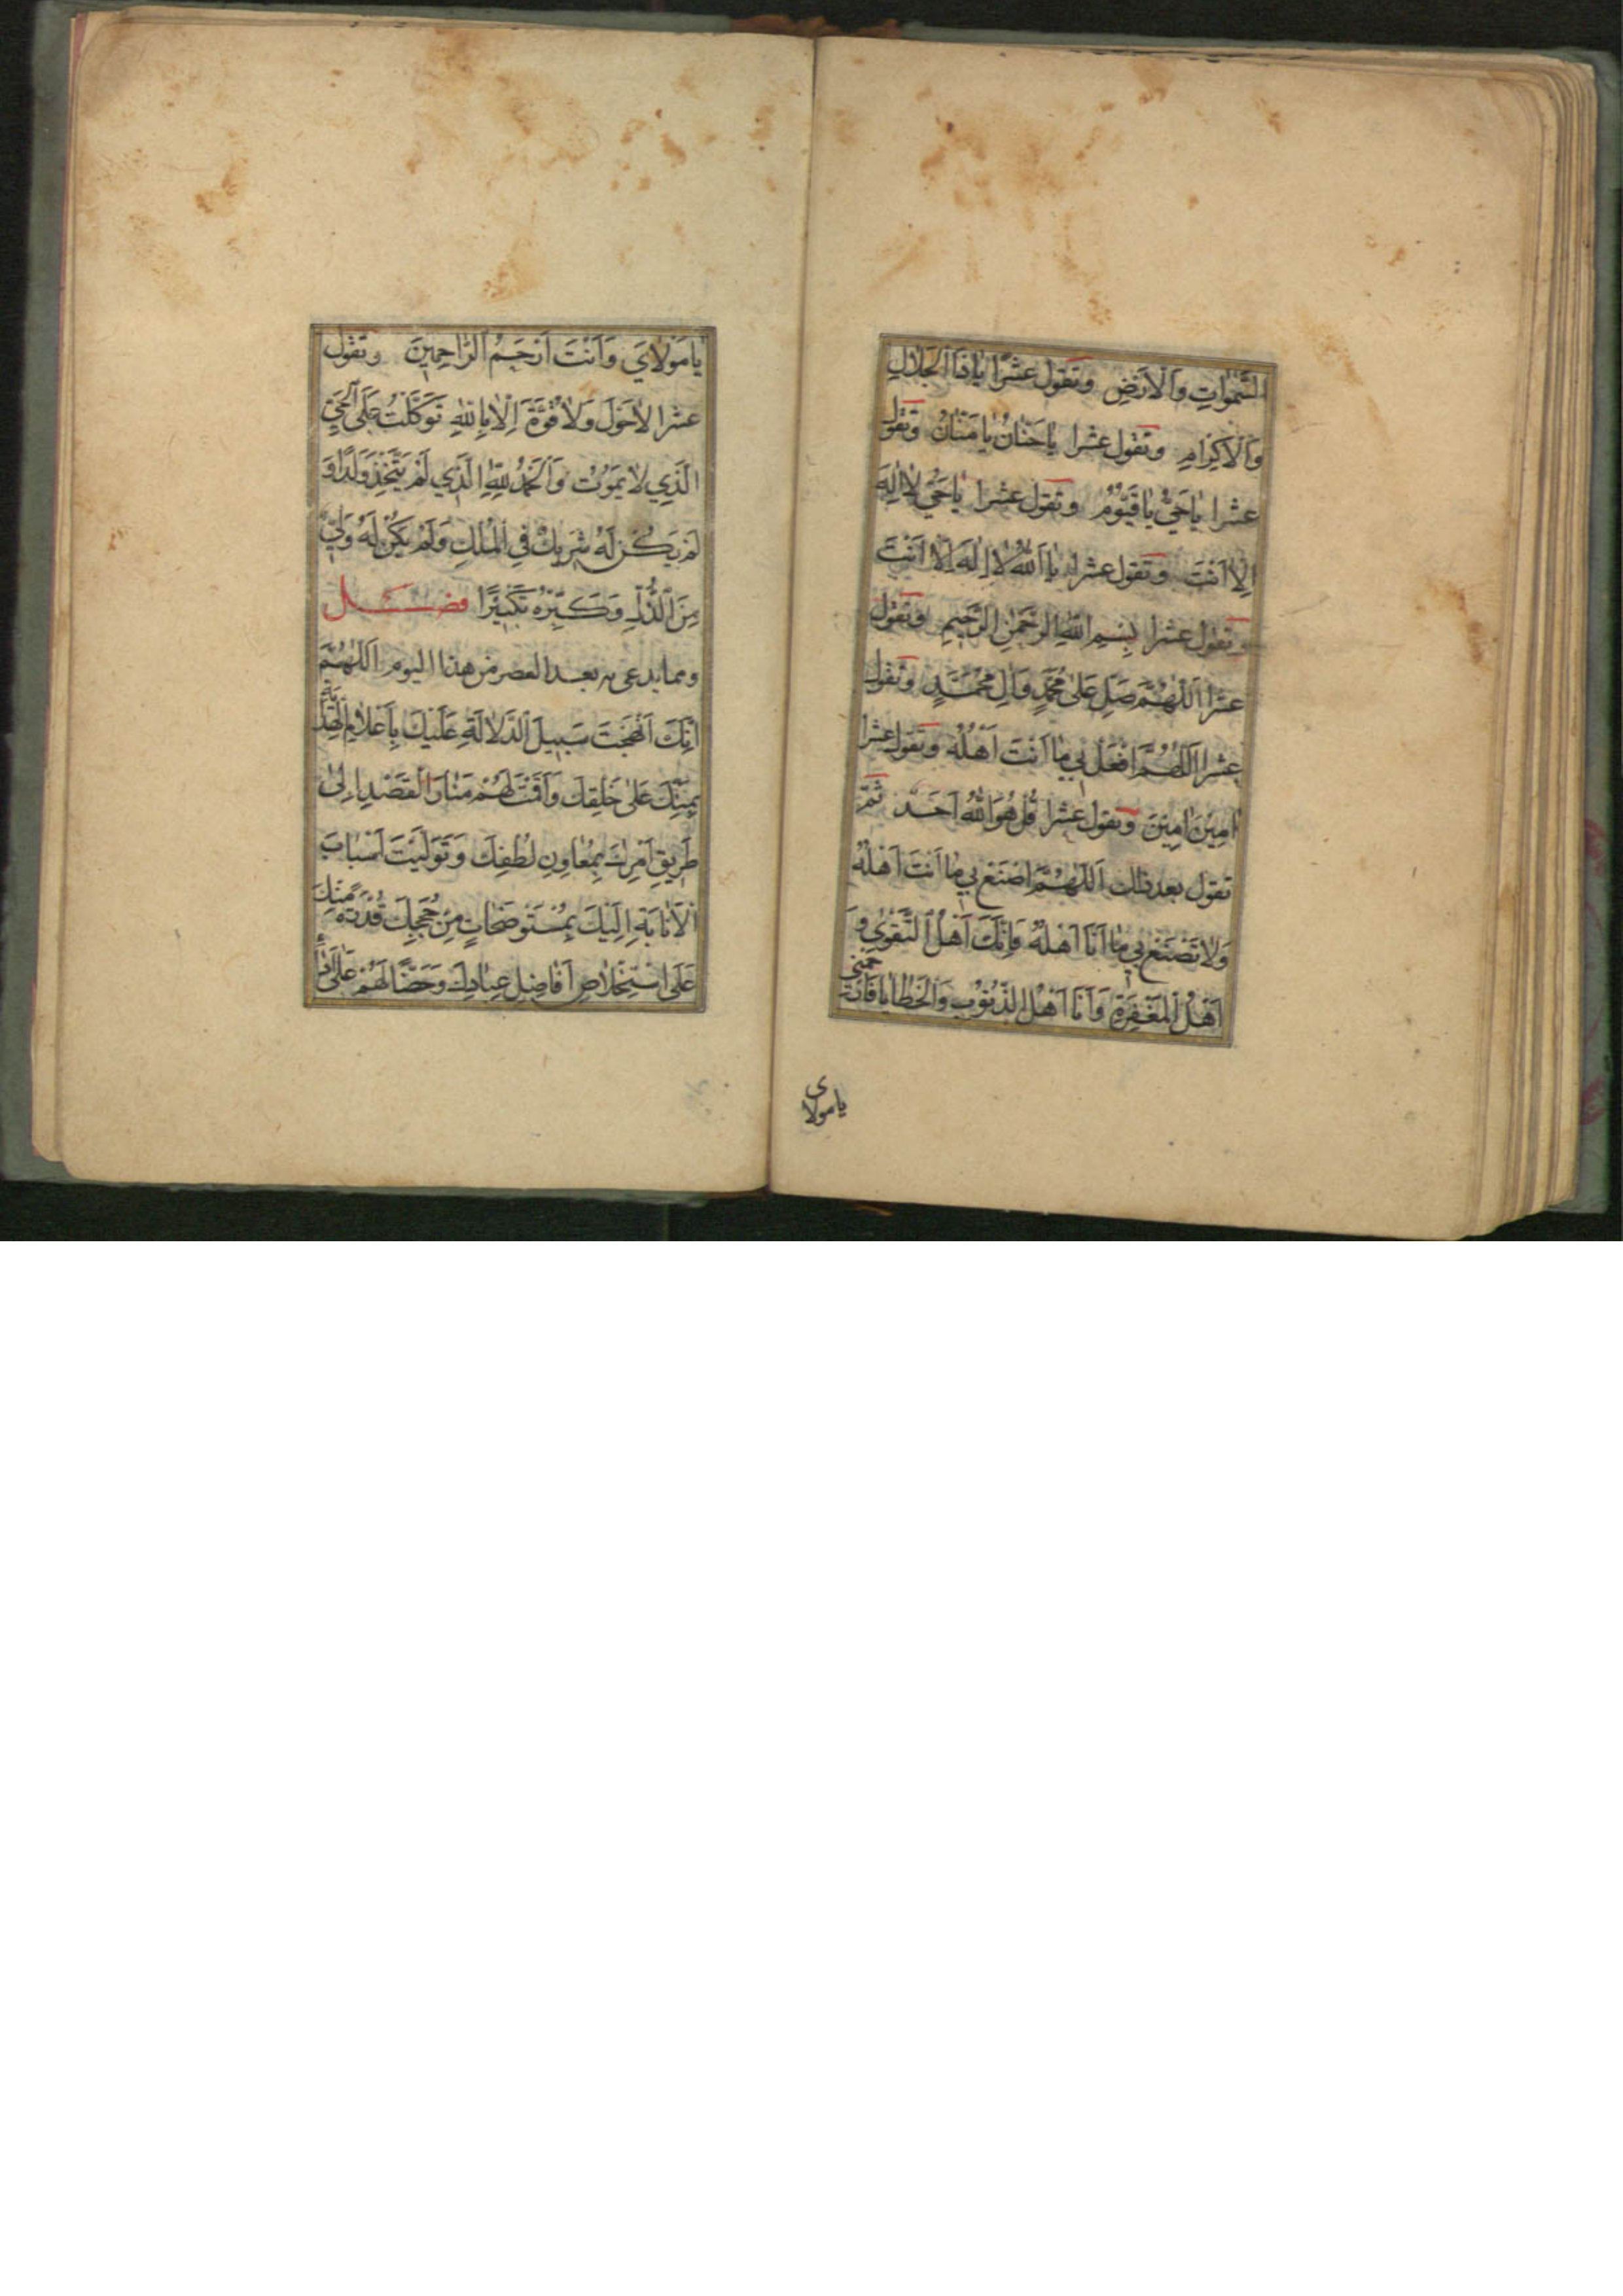 السَّمٰوَاتِ وَالْاَرْضِ وتقول عشرا يَا ذَا الْجَلَالِ
وَالْاِكْرَامِ وتقول عشرا يَا حَنَّانُ يَا مَنَّانُ وتقول
عشرا يَا حَيُّ يَا قَيُّومُ وتقول عشرا يَا حَيُّ لَا اِلٰهَ
اِلَّا اَنْتَ وتقول عشرا يَا اَللّٰهُ لَا اِلٰهَ اِلَّا اَنْتَ
وتقول عشرا بِسْمِ اللّٰهِ الرَّحْمٰنِ الرَّحِيمِ وتقول
عشرا اَللّٰهُمَّ صَلِّ عَلٰى مُحَمَّدٍ وَاٰلِ مُحَمَّدٍ وتقول
عشرا اَللّٰهُمَّ افْعَلْ بِي مَا اَنْتَ اَهْلُهُ وتقول عشرا
اٰمِينَ اٰمِينَ وتقول عشرا قُلْ هُوَ اللّٰهُ اَحَدٌ ثم
تقول بعد ذلك اَللّٰهُمَّ اصْنَعْ بِي مَا اَنْتَ اَهْلُهُ
وَلَا تَصْنَعْ بِي مَا اَنَا اَهْلُهُ فَاِنَّكَ اَهْلُ التَّقْوٰى وَ
اَهْلُ الْمَغْفِرَةِ وَاَنَا اَهْلُ الذُّنُوبِ وَالْخَطَايَا فَارْحَمْنِي
يا مولاى
يَا مَوْلَايَ وَاَنْتَ اَرْحَمُ الرَّاحِمِينَ وتقول
عشرا لَا حَوْلَ وَلَا قُوَّةَ اِلَّا بِاللّٰهِ تَوَكَّلْتُ عَلَى الْحَيِّ
الَّذِي لَا يَمُوتُ وَالْحَمْدُ لِلّٰهِ الَّذِي لَمْ يَتَّخِذْ وَلَدًا وَ
لَمْ يَكُنْ لَهُ شَرِيكٌ فِي الْمُلْكِ وَلَمْ يَكُنْ لَهُ وَلِيٌّ
مِنَ الذُّلِّ وَكَبِّرْهُ تَكْبِيرًا فصل
ومما يدعى به بعد العصر من هذا اليوم اَللّٰهُمَّ
اِنَّكَ اَنْهَجْتَ سَبِيلَ الدَّلَالَةِ عَلَيْكَ بِاَعْلَامِ الْهِدَايَةِ
بِمَنِّكَ عَلٰى خَلْقِكَ وَاَقَمْتَ لَهُمْ مَنَارَ الْقَصْدِ اِلٰى
طَرِيقِ اَمْرِكَ بِمَعَاوِنِ لُطْفِكَ وَتَوَلَّيْتَ اَسْبَابَ
الْاِنَابَةِ اِلَيْكَ بِمُسْتَوْضَحَاتٍ مِنْ حُجَجِكَ قُدْرَةً مِنْكَ
عَلَى اسْتِخْلَاصِ اَفَاضِلِ عِبَادِكَ وَحَضًّا لَهُمْ عَلٰى اَدَاءِ